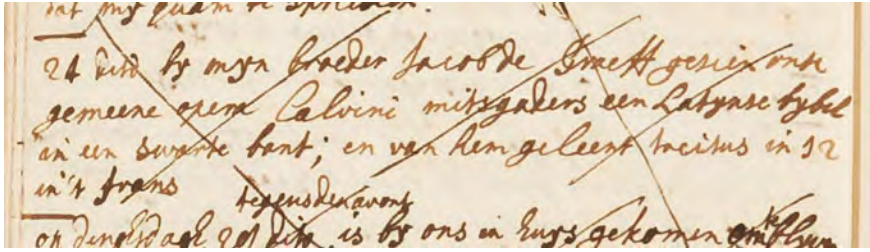 dat my quam te spreken.
24 dito by myn broeder Jacob de Graeff gesien onse
gemeene opera Calvini mitsgaders een Latynse bybel
in een swarte bant; en van hem geleent tacitus in 12
in't frans
tegens den avont
op dingsdagh 29 dito is by ons in huys gekomen